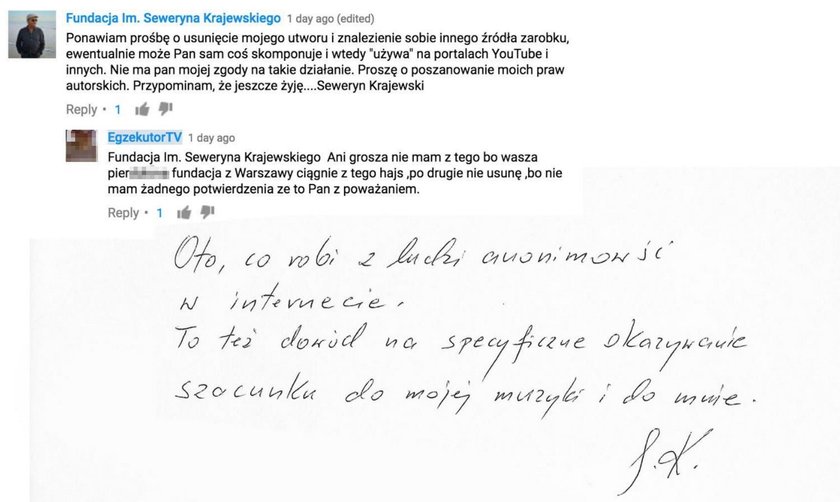 Fundacja Im. Seweryna Krajewskiego 1 day ago (edited)
Ponawiam prośbę o usunięcie mojego utworu i znalezienie sobie innego źródła zarobku,
ewentualnie może Pan sam coś skomponuje i wtedy "używa" na portalach YouTube i
innych. Nie ma pan mojej zgody na takie działanie. Proszę o poszanowanie moich praw
autorskich. Przypominam, że jeszcze żyję....Seweryn Krajewski
Reply • 1
EgzekutorTV 1 day ago
Fundacja Im. Seweryna Krajewskiego Ani grosza nie mam z tego bo wasza
pier fundacja z Warszawy ciągnie z tego hajs ,po drugie nie usunę ,bo nie
mam żadnego potwierdzenia ze to Pan z poważaniem.
Reply • 1
Oto, co robi z ludzi anonimowość
w internecie.
To też dowód na specyficzne okazywanie
szacunku do mojej muzyki i do mnie.
S.K.